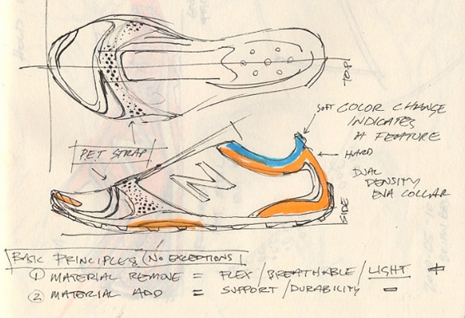 TOP
SOFT COLOR CHANGE
INDICATES
A FEATURE
PET STRAP
HARD
DUAL
DENSITY
EVA COLLAR
N
SIDE
BASIC PRINCIPLES (NO EXCEPTIONS)
① MATERIAL REMOVE = FLEX/BREATHABLE/LIGHT +
② MATERIAL ADD = SUPPORT/DURABILITY -